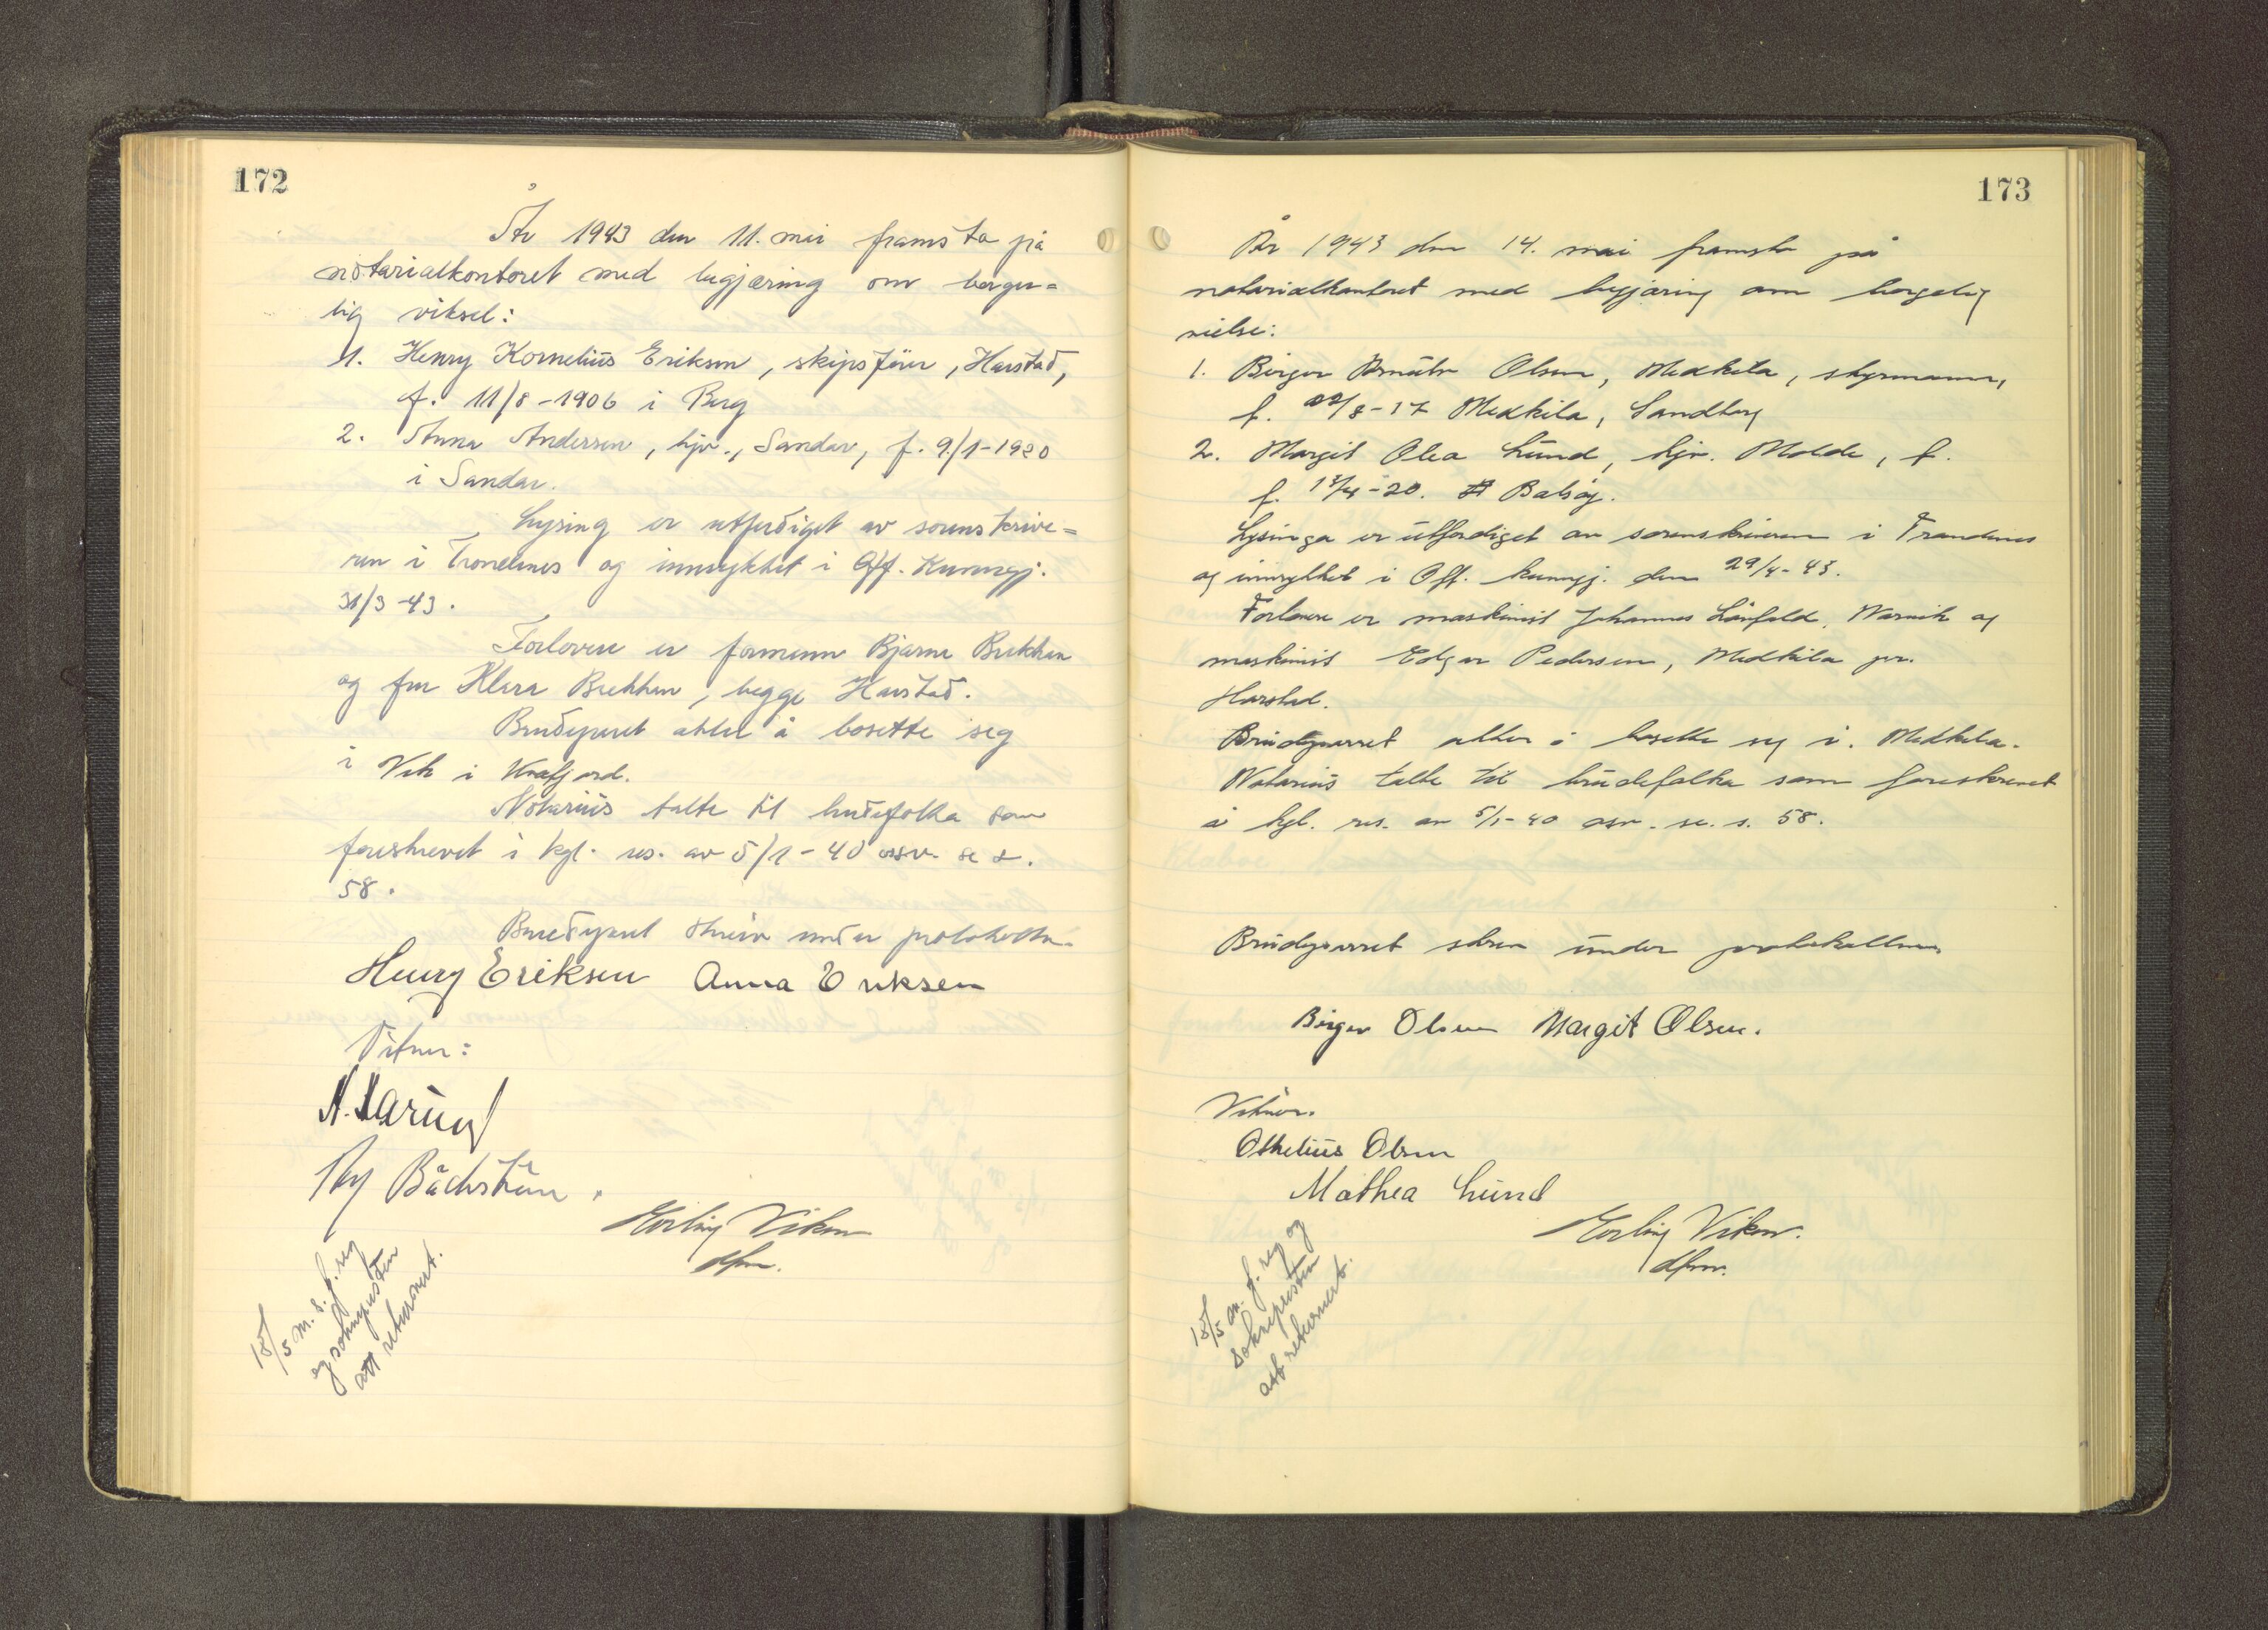 172
År 1943 den 11. mai framsto på
notarialkontoret med begjæring om borger=
lig viksel:
1. Henry Kornelius Eriksen, skipsfører, Harstad,
f. 11/8-1906 i Berg
2. Anna Andersen, hjv., Sandar, f. 9/1-1920
i Sandar.
Lysing er utferdiget av sorenskrive=
ren i Trondenes og innrykket i Off. Kunngj.
31/3-43.
Forlovere er formann Bjarne Brekken
og fru Klara Brekken, begge Harstad.
Brudeparet akter å bosette seg
i Vik i
Notarius talte til brudefolka som
foreskrevet i kgl. res. av 5/1-40 osv. se s.
58.
Brudeparet skreiv under protokollen.
Henry Eriksen Anna Eriksen
Vitner:
Erling Viken
dfm.
18/5 m. s. f. reg
og sokneprsten
att returnert.
173
År 1943 den 14. mai framsto på
notarialkontoret med begjæring om borgelig
vielse:
1. Birger Olsen, Medkila, styrmann,
f. 22/8-17 Medkila, Sandtorg
2. Margit Olea Lund, hjv. Molde, f.
f. 13/4-20.
Lysinga er utferdiget av sorenskriveren i Trondenes
og innrykket i Off. kunngj. den 29/4-43.
Forlovere er maskinist Johannes og
maskinist Edgar Pedersen, Medkila pr.
Harstad.
Brudeparret akter å bosette seg i. Medkila.
Notarius talte til brudefolka som foreskrevet
i kgl. res. av 5/1-40 osv. se. s. 58.
Brudeparret skrev under protokollen
Birger Olsen Margit Olsen.
Vitner.
Othelius Olsen
Mathea Lund
Erling Viken.
dfm.
18/5 m. f. reg og
sokneprsten
att returnert.